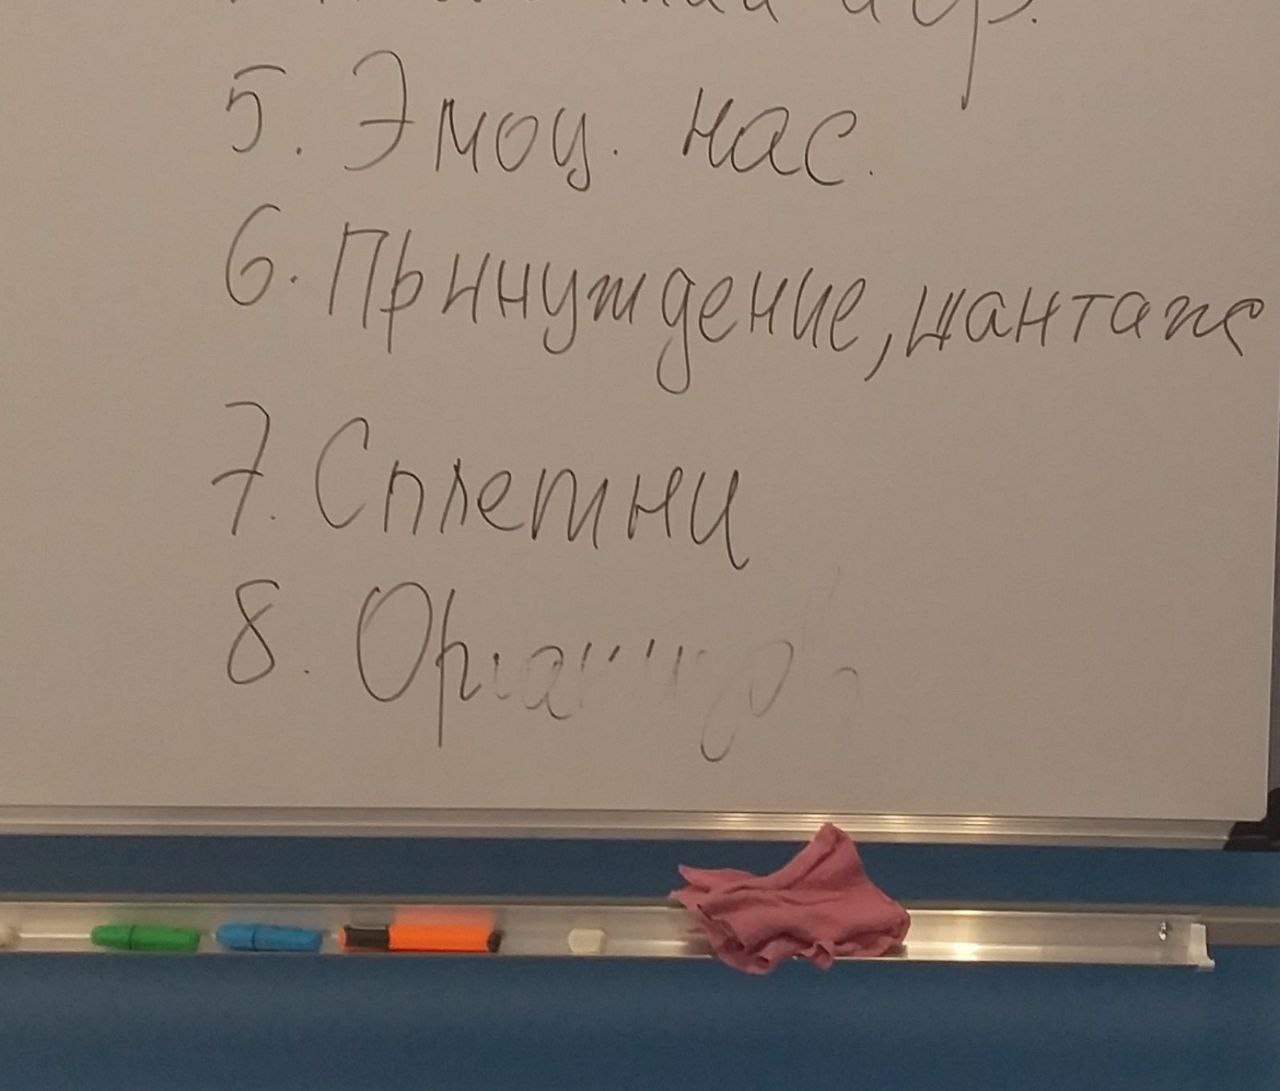 5. Эмоц. нас.
6. Принуждение, шантаж
7. Сплетни
8.